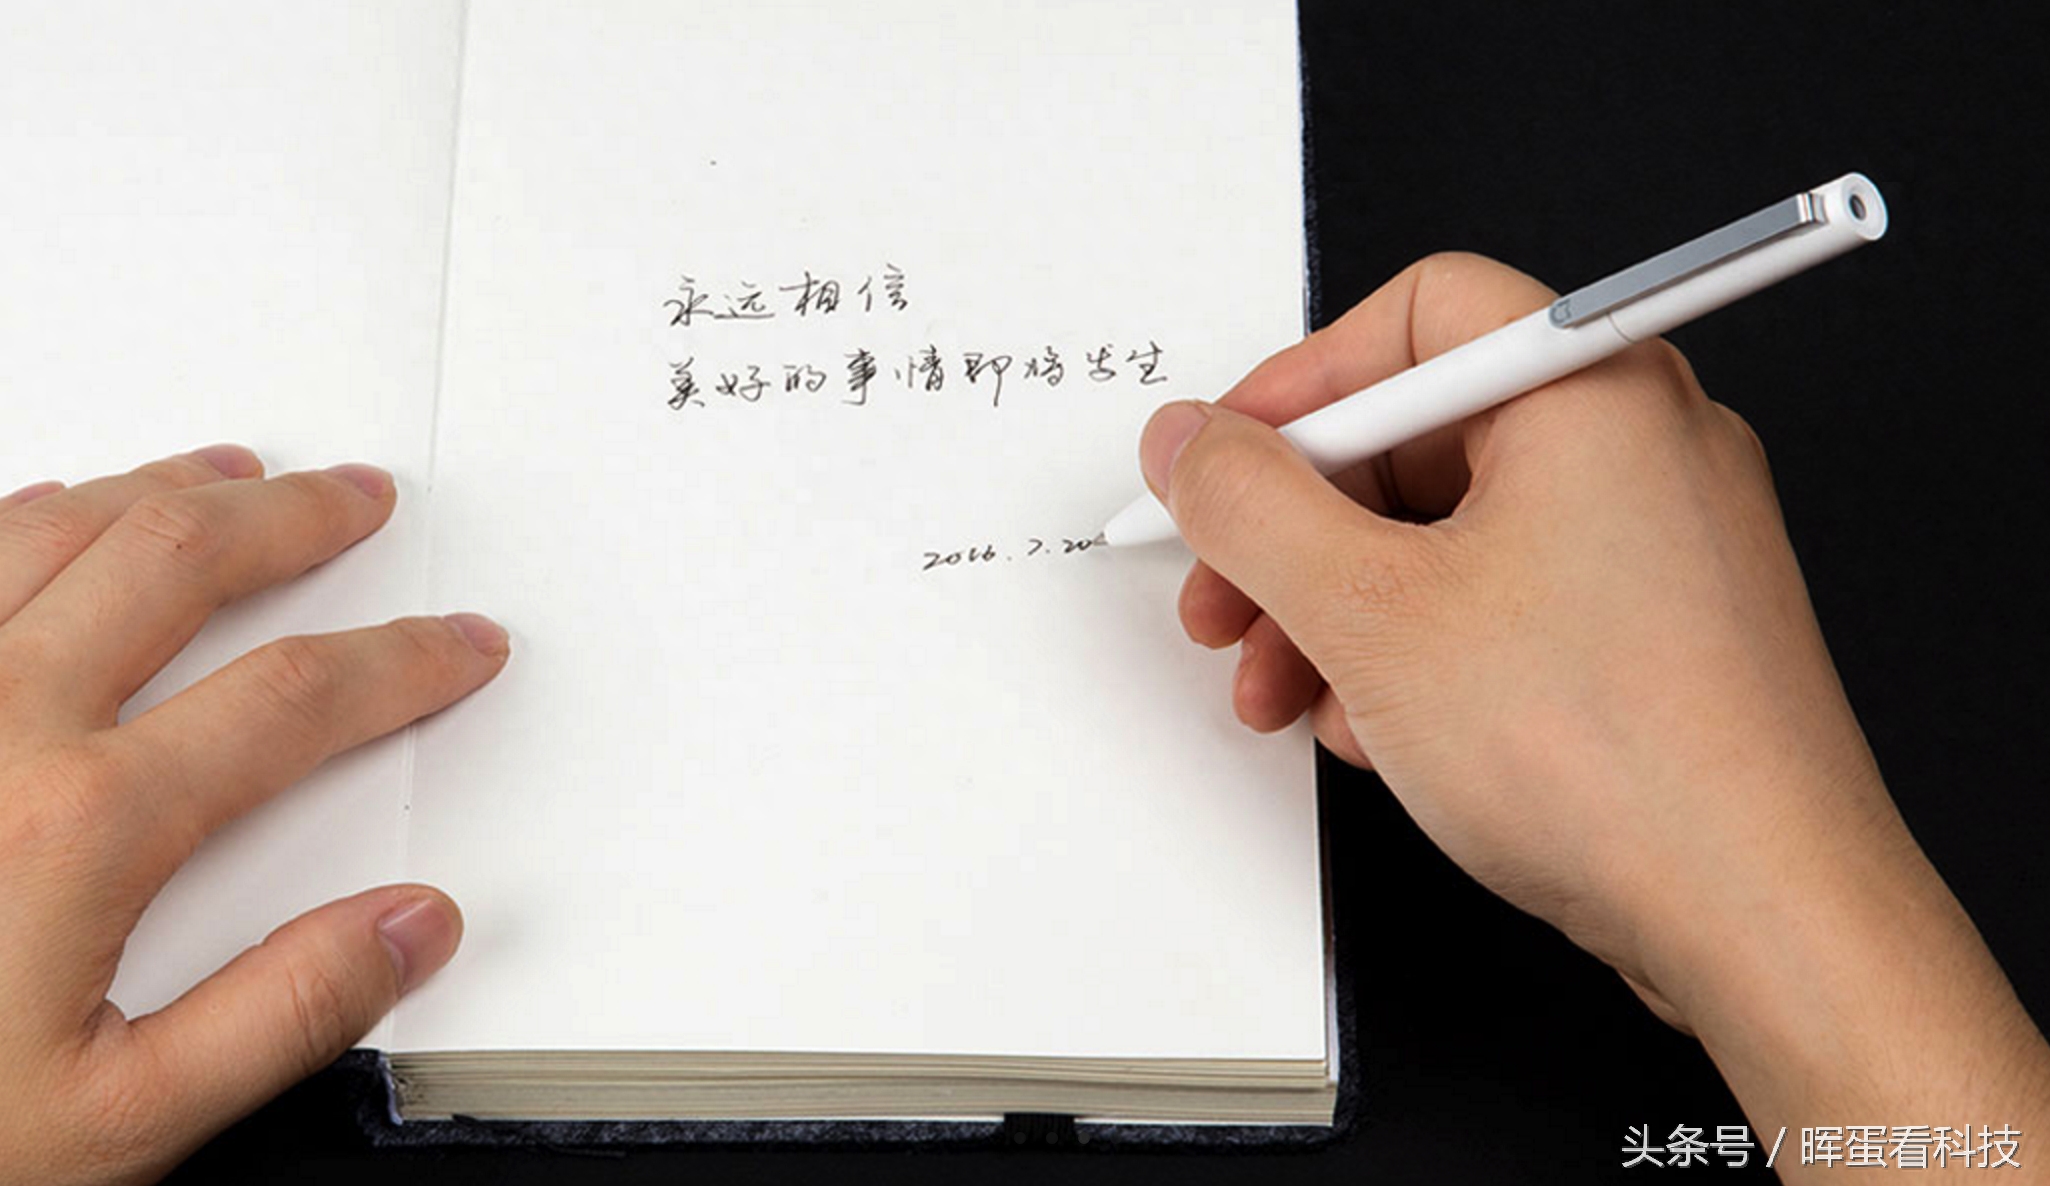 永远相信
美好的事情即将发生
2016.7.20
头条号 / 晖蛋看科技